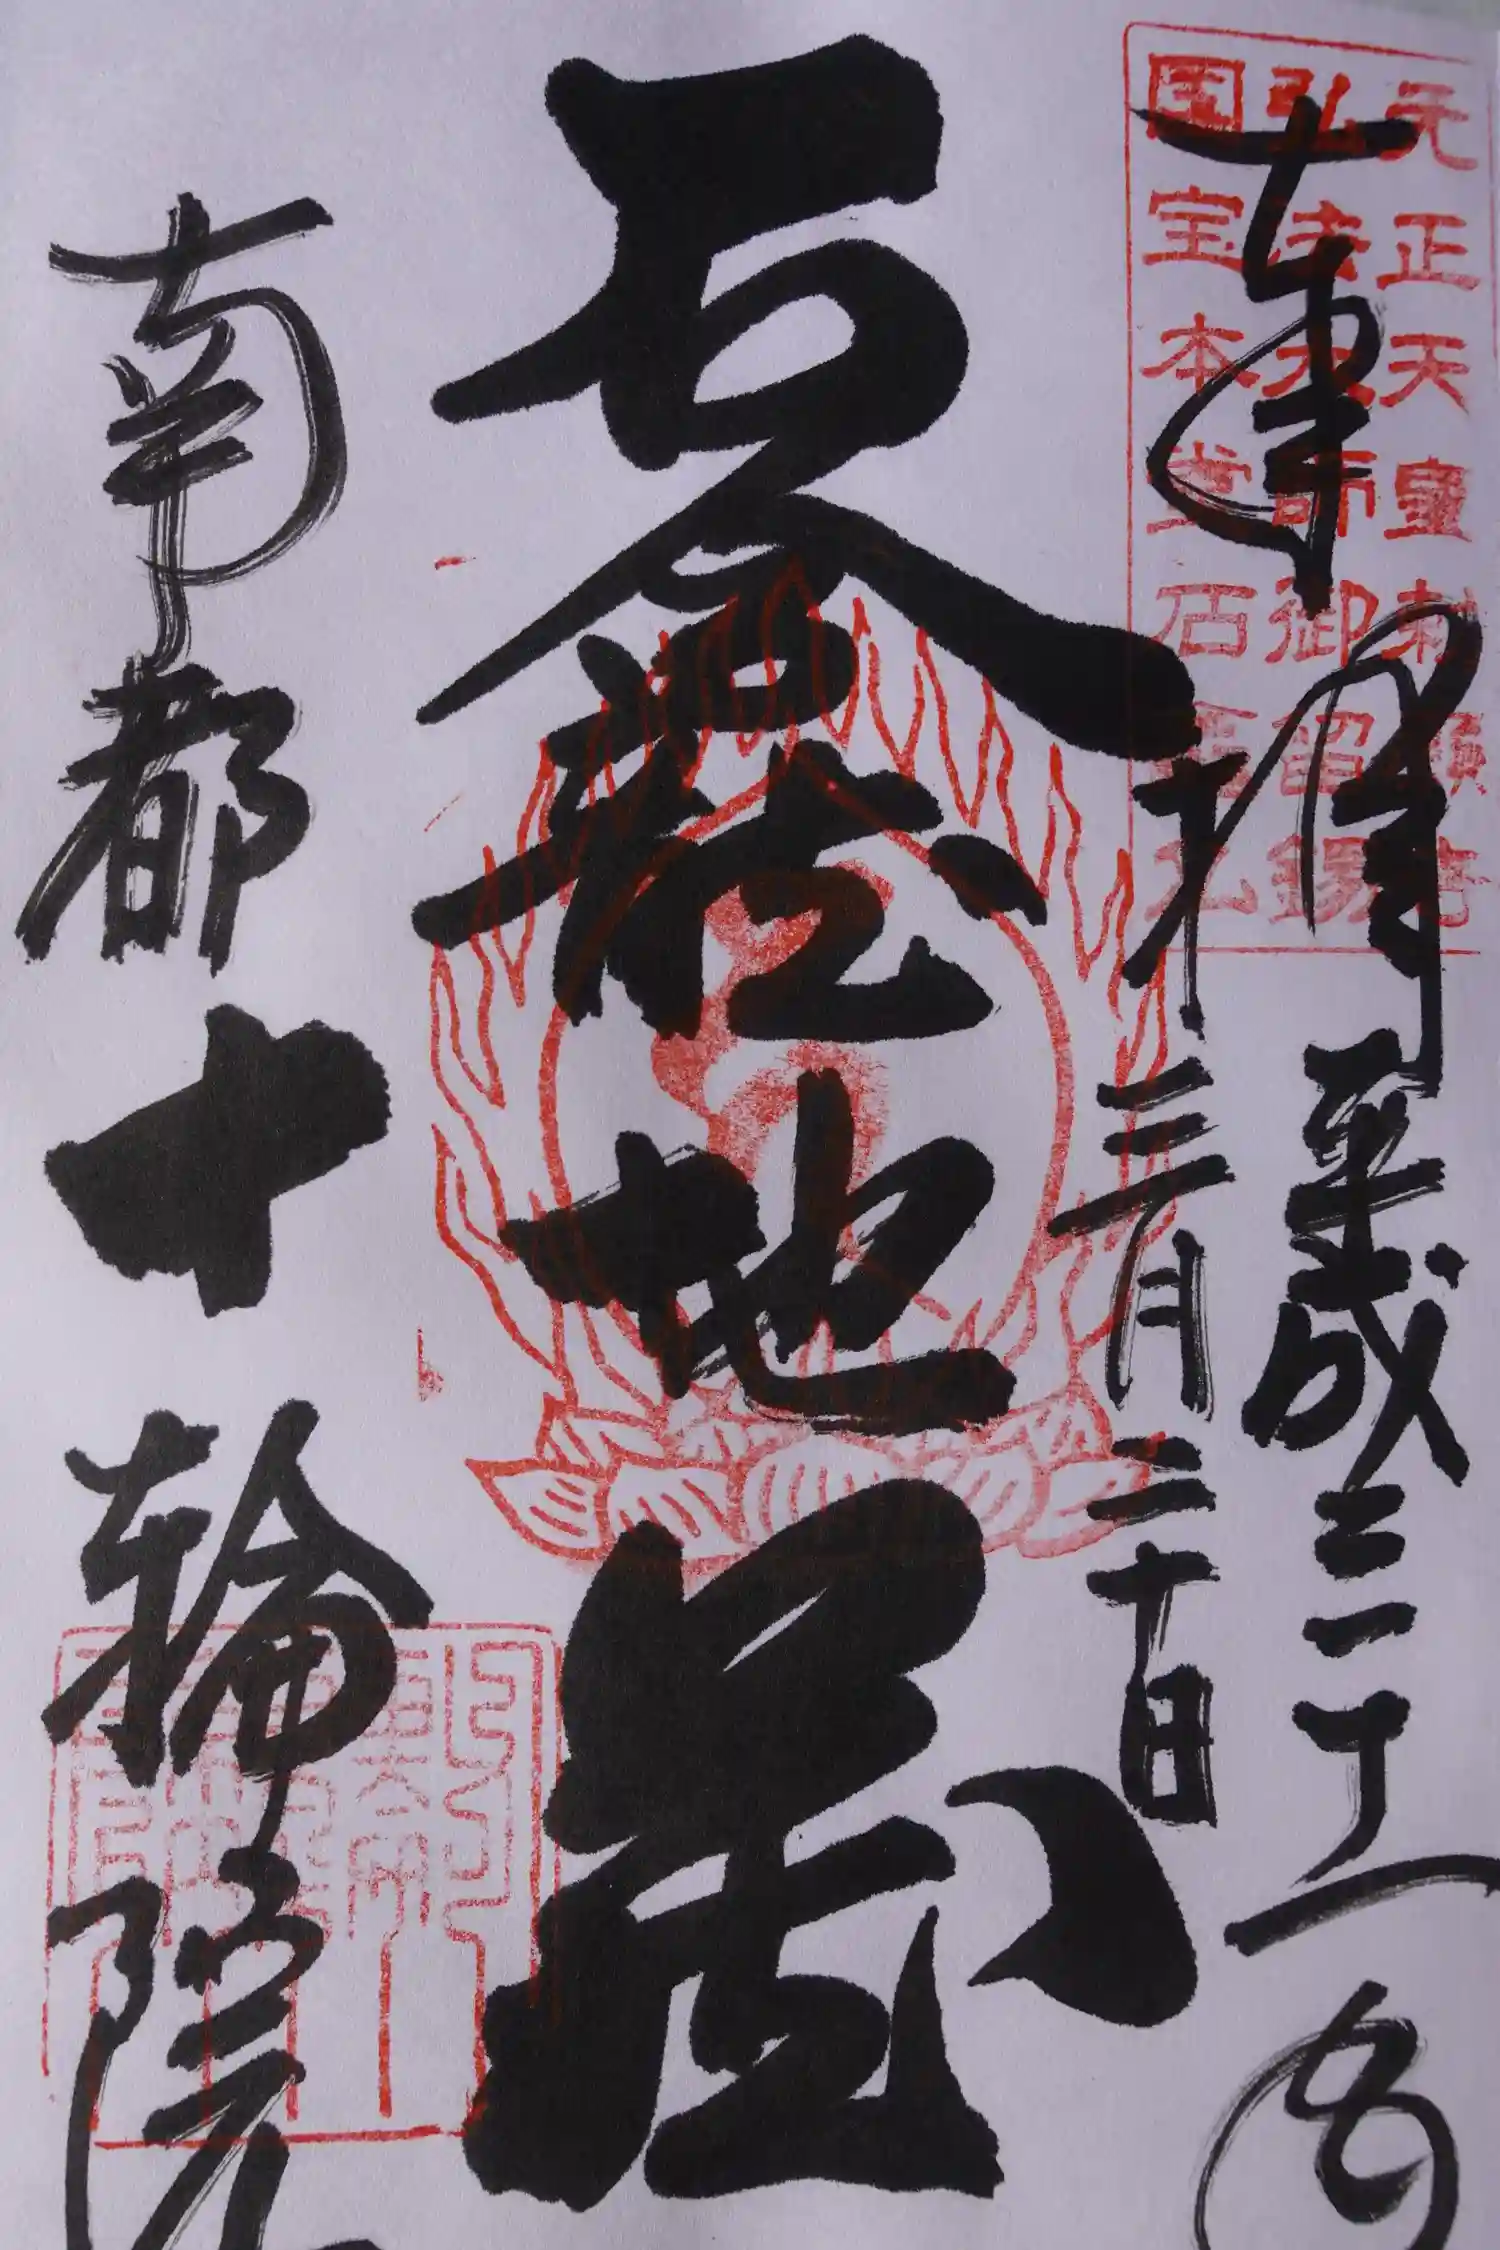 元正天皇勅願寺
弘法大師御留錫
国宝本堂石仏
奉拝
平成
才三月二十日
石龕地蔵
南都十輪院